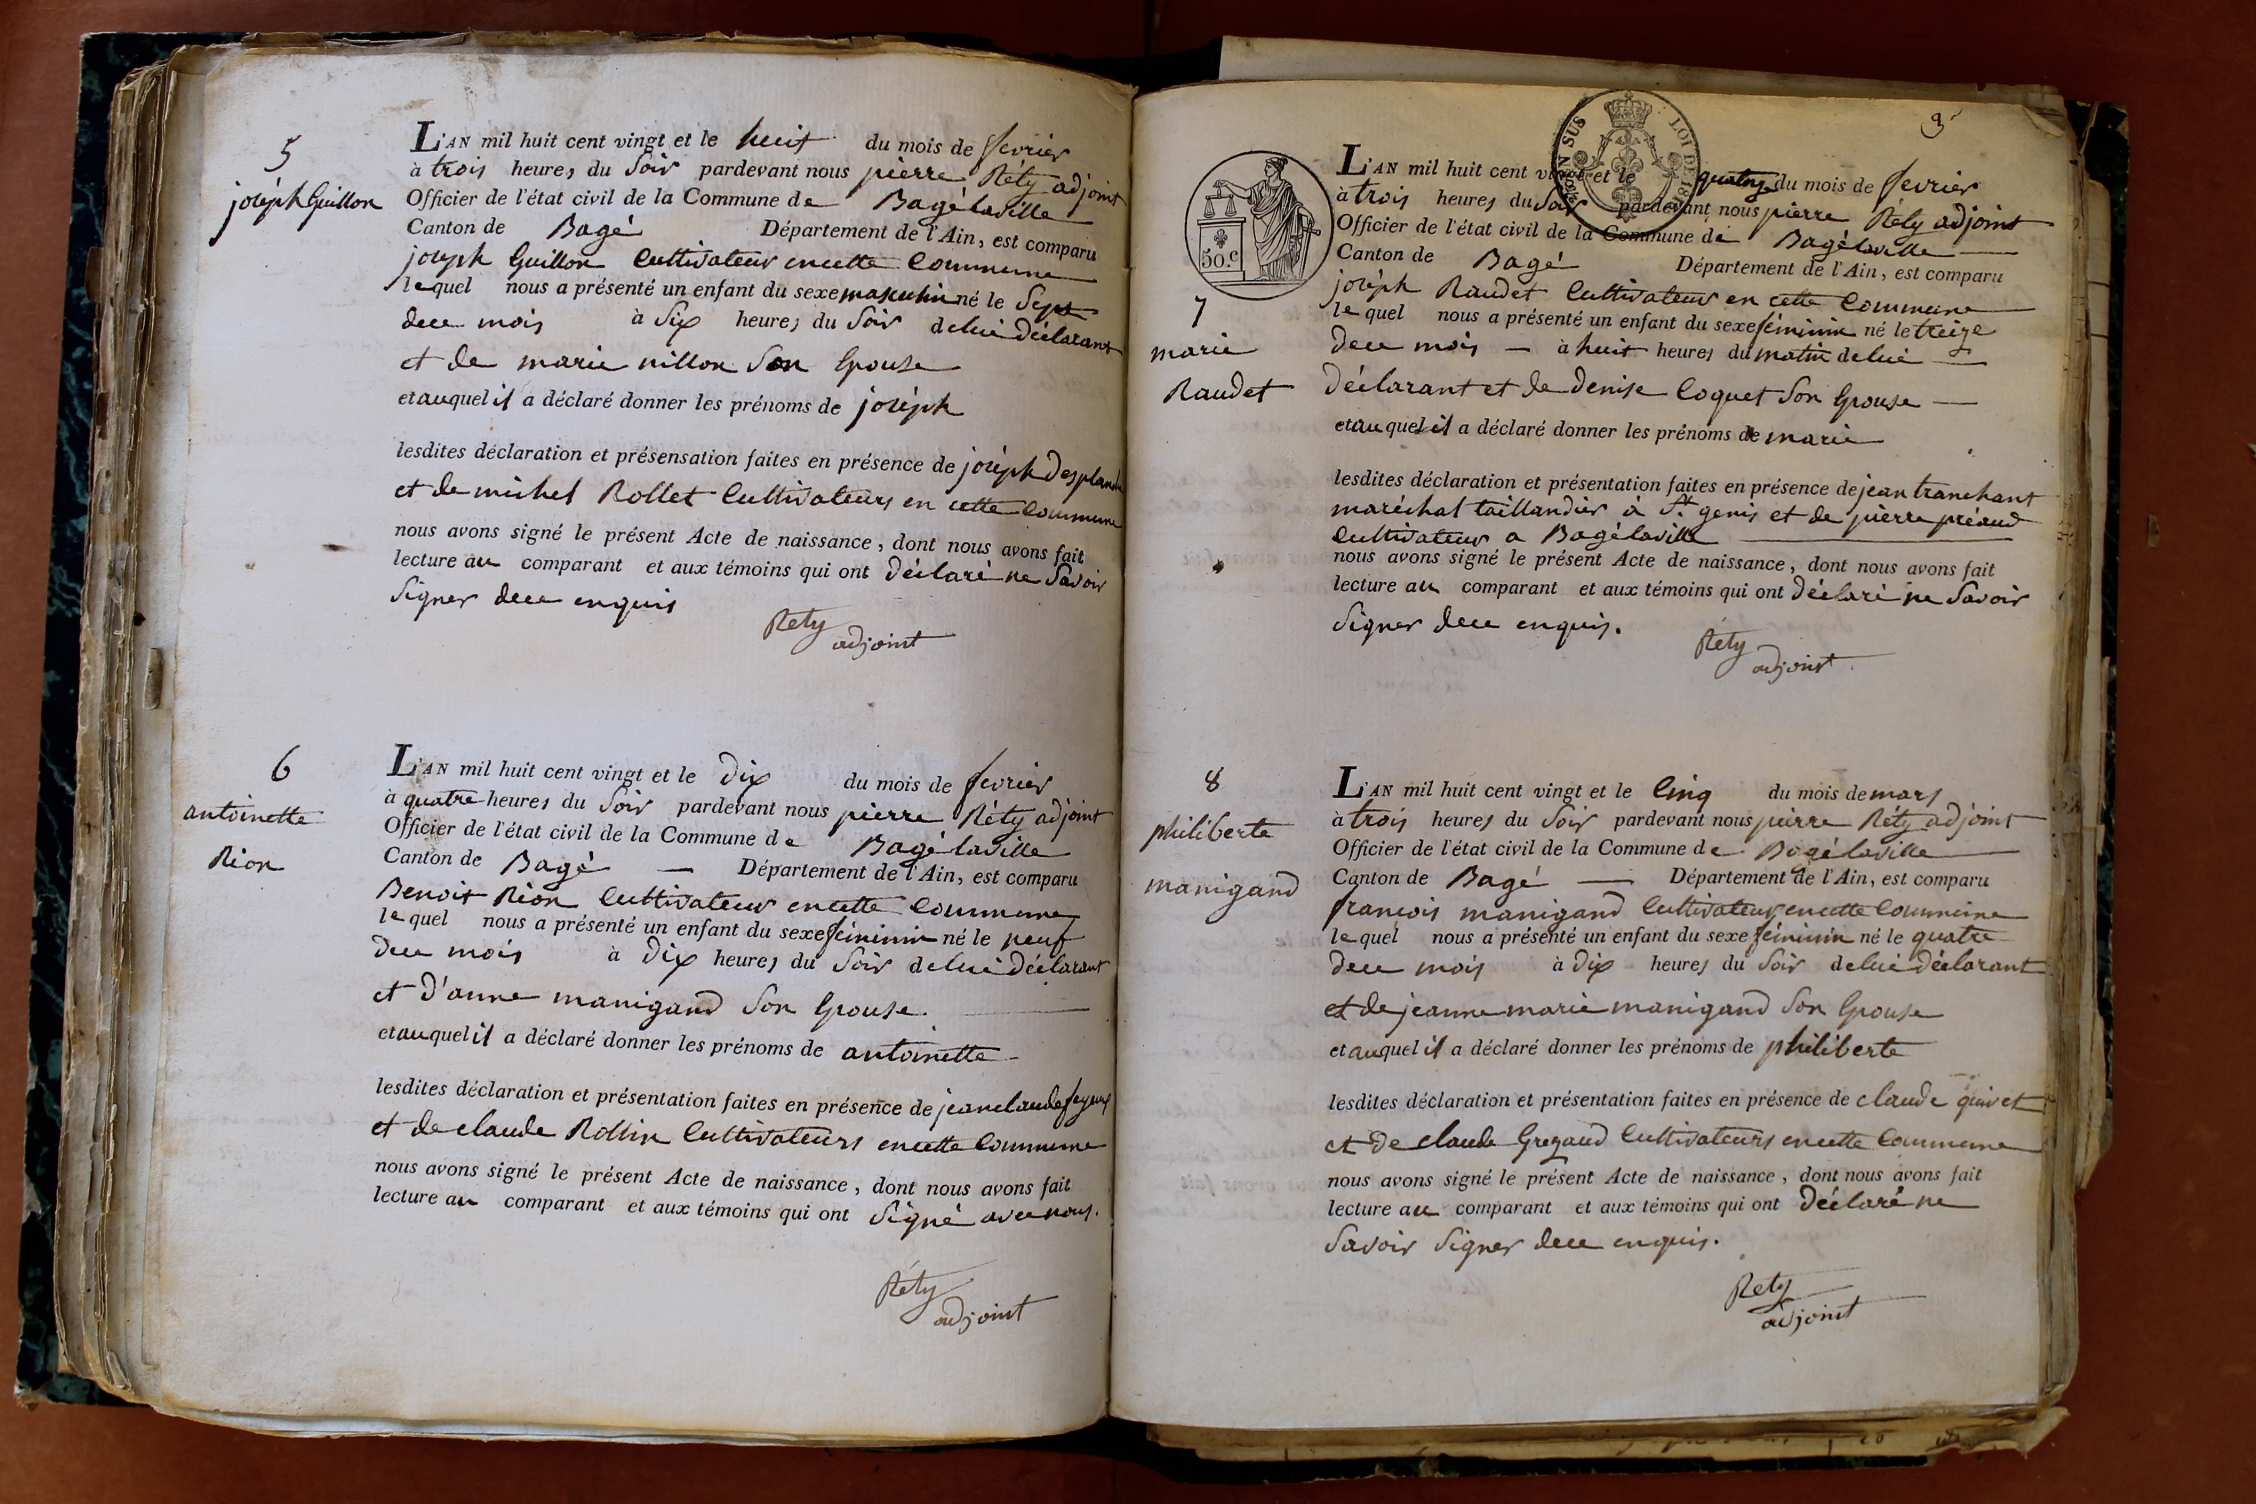 5
joseph Guillon
L'AN mil huit cent vingt et le huit du mois de fevrier
à trois heures du Soir pardevant nous pierre Réty adjoint
Officier de l'état civil de la Commune de Bagélaville
Canton de Bagé Département de l'Ain, est comparu
joseph Guillon Cultivateur encette Commune
lequel nous a présenté un enfant du sexe masculin né le Sept
dece mois à Six heures du Soir delui déclarant
et de marie nillon Son Epouse
et auquel il a déclaré donner les prénoms de joseph
lesdites déclaration et présensation faites en présence de joseph
et de michel Rollet Cultivateurs en cette Commune
nous avons signé le présent Acte de naissance, dont nous avons fait
lecture au comparant et aux témoins qui ont déclaré ne Savoir
Signer dece enquis
Réty
adjoint
6
antoinette
Rion
L'AN mil huit cent vingt et le dix du mois de fevrier
à quatre heures du Soir pardevant nous pierre Réty adjoint
Officier de l'état civil de la Commune de Bagélaville
Canton de Bagé — Département de l'Ain, est comparu
Benoit Rion Cultivateur encette Commune
lequel nous a présenté un enfant du sexe féminin né le neuf
dece mois à dix heures du Soir delui déclarant
et d'anne manigand Son Epouse.
et auquel il a déclaré donner les prénoms de antoinette
lesdites déclaration et présentation faites en présence de jeanclaude
et de claude Rollin Cultivateurs encette Commune
nous avons signé le présent Acte de naissance, dont nous avons fait
lecture au comparant et aux témoins qui ont Signé avec nous.
Réty
adjoint
3
SUS
LOI DE 18
50.c
7
marie
Raudet
L'AN mil huit cent vingt et le quatorze du mois de fevrier
à trois heures du Soir pardevant nous pierre Réty adjoint
Officier de l'état civil de la Commune de Bagélaville
Canton de Bagé Département de l'Ain, est comparu
joseph Raudet Cultivateur en cette Commune
lequel nous a présenté un enfant du sexe féminin né le treize
dece mois — à huit heures du matin delui
déclarant et de denise Coquet Son Epouse —
et auquel il a déclaré donner les prénoms de marie
lesdites déclaration et présentation faites en présence de jean tranchant
maréchal taillandier à St genis et de pierre préaud
Cultivateur a Bagélaville
nous avons signé le présent Acte de naissance, dont nous avons fait
lecture au comparant et aux témoins qui ont déclaré ne Savoir
Signer dece enquis.
Réty
adjoint.
8
philiberte
manigand
L'AN mil huit cent vingt et le Cinq du mois de mars
à trois heures du Soir pardevant nous pierre Réty adjoint
Officier de l'état civil de la Commune de Bagélaville
Canton de Bagé — Département de l'Ain, est comparu
francois manigand Cultivateur encette Commune
lequel nous a présenté un enfant du sexe féminin né le quatre
dece mois à dix heures du Soir delui déclarant
et de jeanne marie manigand Son Epouse
et auquel il a déclaré donner les prénoms de philiberte
lesdites déclaration et présentation faites en présence de claude quivet
et de claude Gregaud Cultivateurs encette Commune
nous avons signé le présent Acte de naissance, dont nous avons fait
lecture au comparant et aux témoins qui ont déclaré ne
Savoir Signer dece enquis.
Réty
adjoint